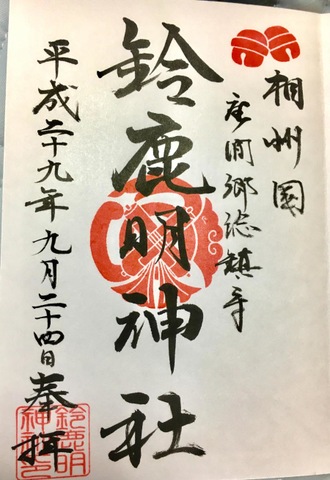 相州国
座間郷総鎮守
鈴鹿明神社
平成二十九年九月二十四日奉拝
鈴鹿明
神社之印